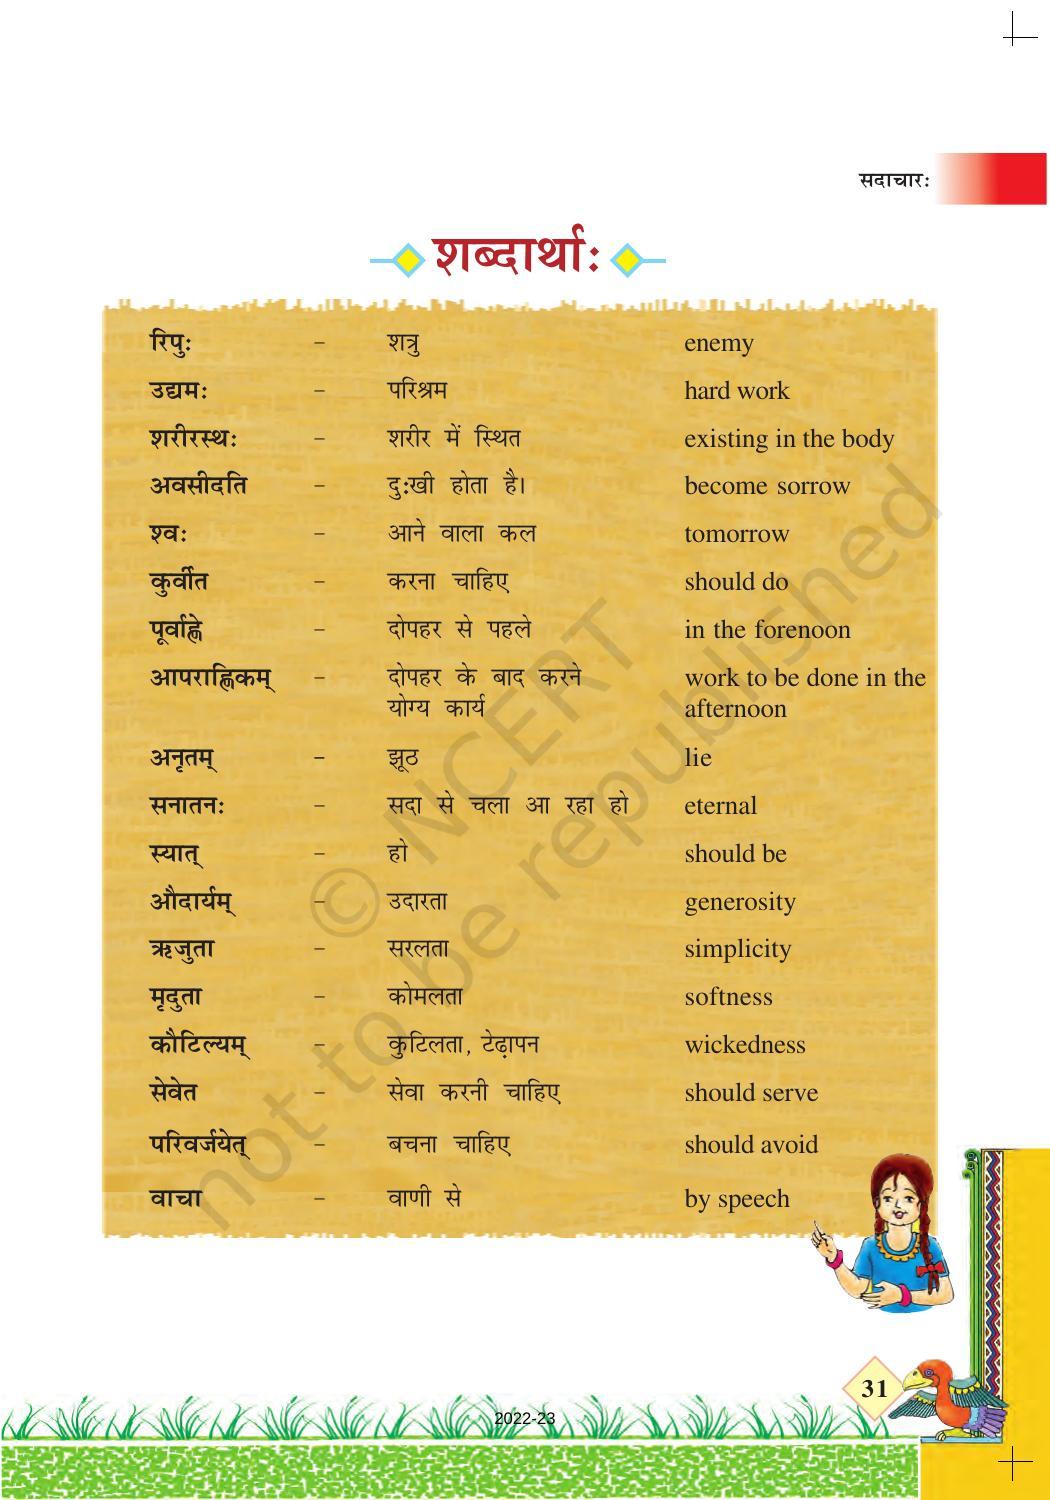 सदाचारः
शब्दार्थाः
रिपुः – शत्रु enemy
उद्यमः – परिश्रम hard work
शरीरस्थः – शरीर में स्थित existing in the body
अवसीदति – दुःखी होता है। become sorrow
श्वः – आने वाला कल tomorrow
कुर्वीत – करना चाहिए should do
पूर्वाह्णे – दोपहर से पहले in the forenoon
आपराह्णिकम् – दोपहर के बाद करने work to be done in the
योग्य कार्य afternoon
अनृतम् – झूठ lie
सनातनः – सदा से चला आ रहा हो eternal
स्यात् – हो should be
औदार्यम् – उदारता generosity
ऋजुता – सरलता simplicity
मृदुता – कोमलता softness
कौटिल्यम् – कुटिलता, टेढ़ापन wickedness
सेवेत – सेवा करनी चाहिए should serve
परिवर्जयेत् – बचना चाहिए should avoid
वाचा – वाणी से by speech
© NCERT
not to be republished
31
2022-23